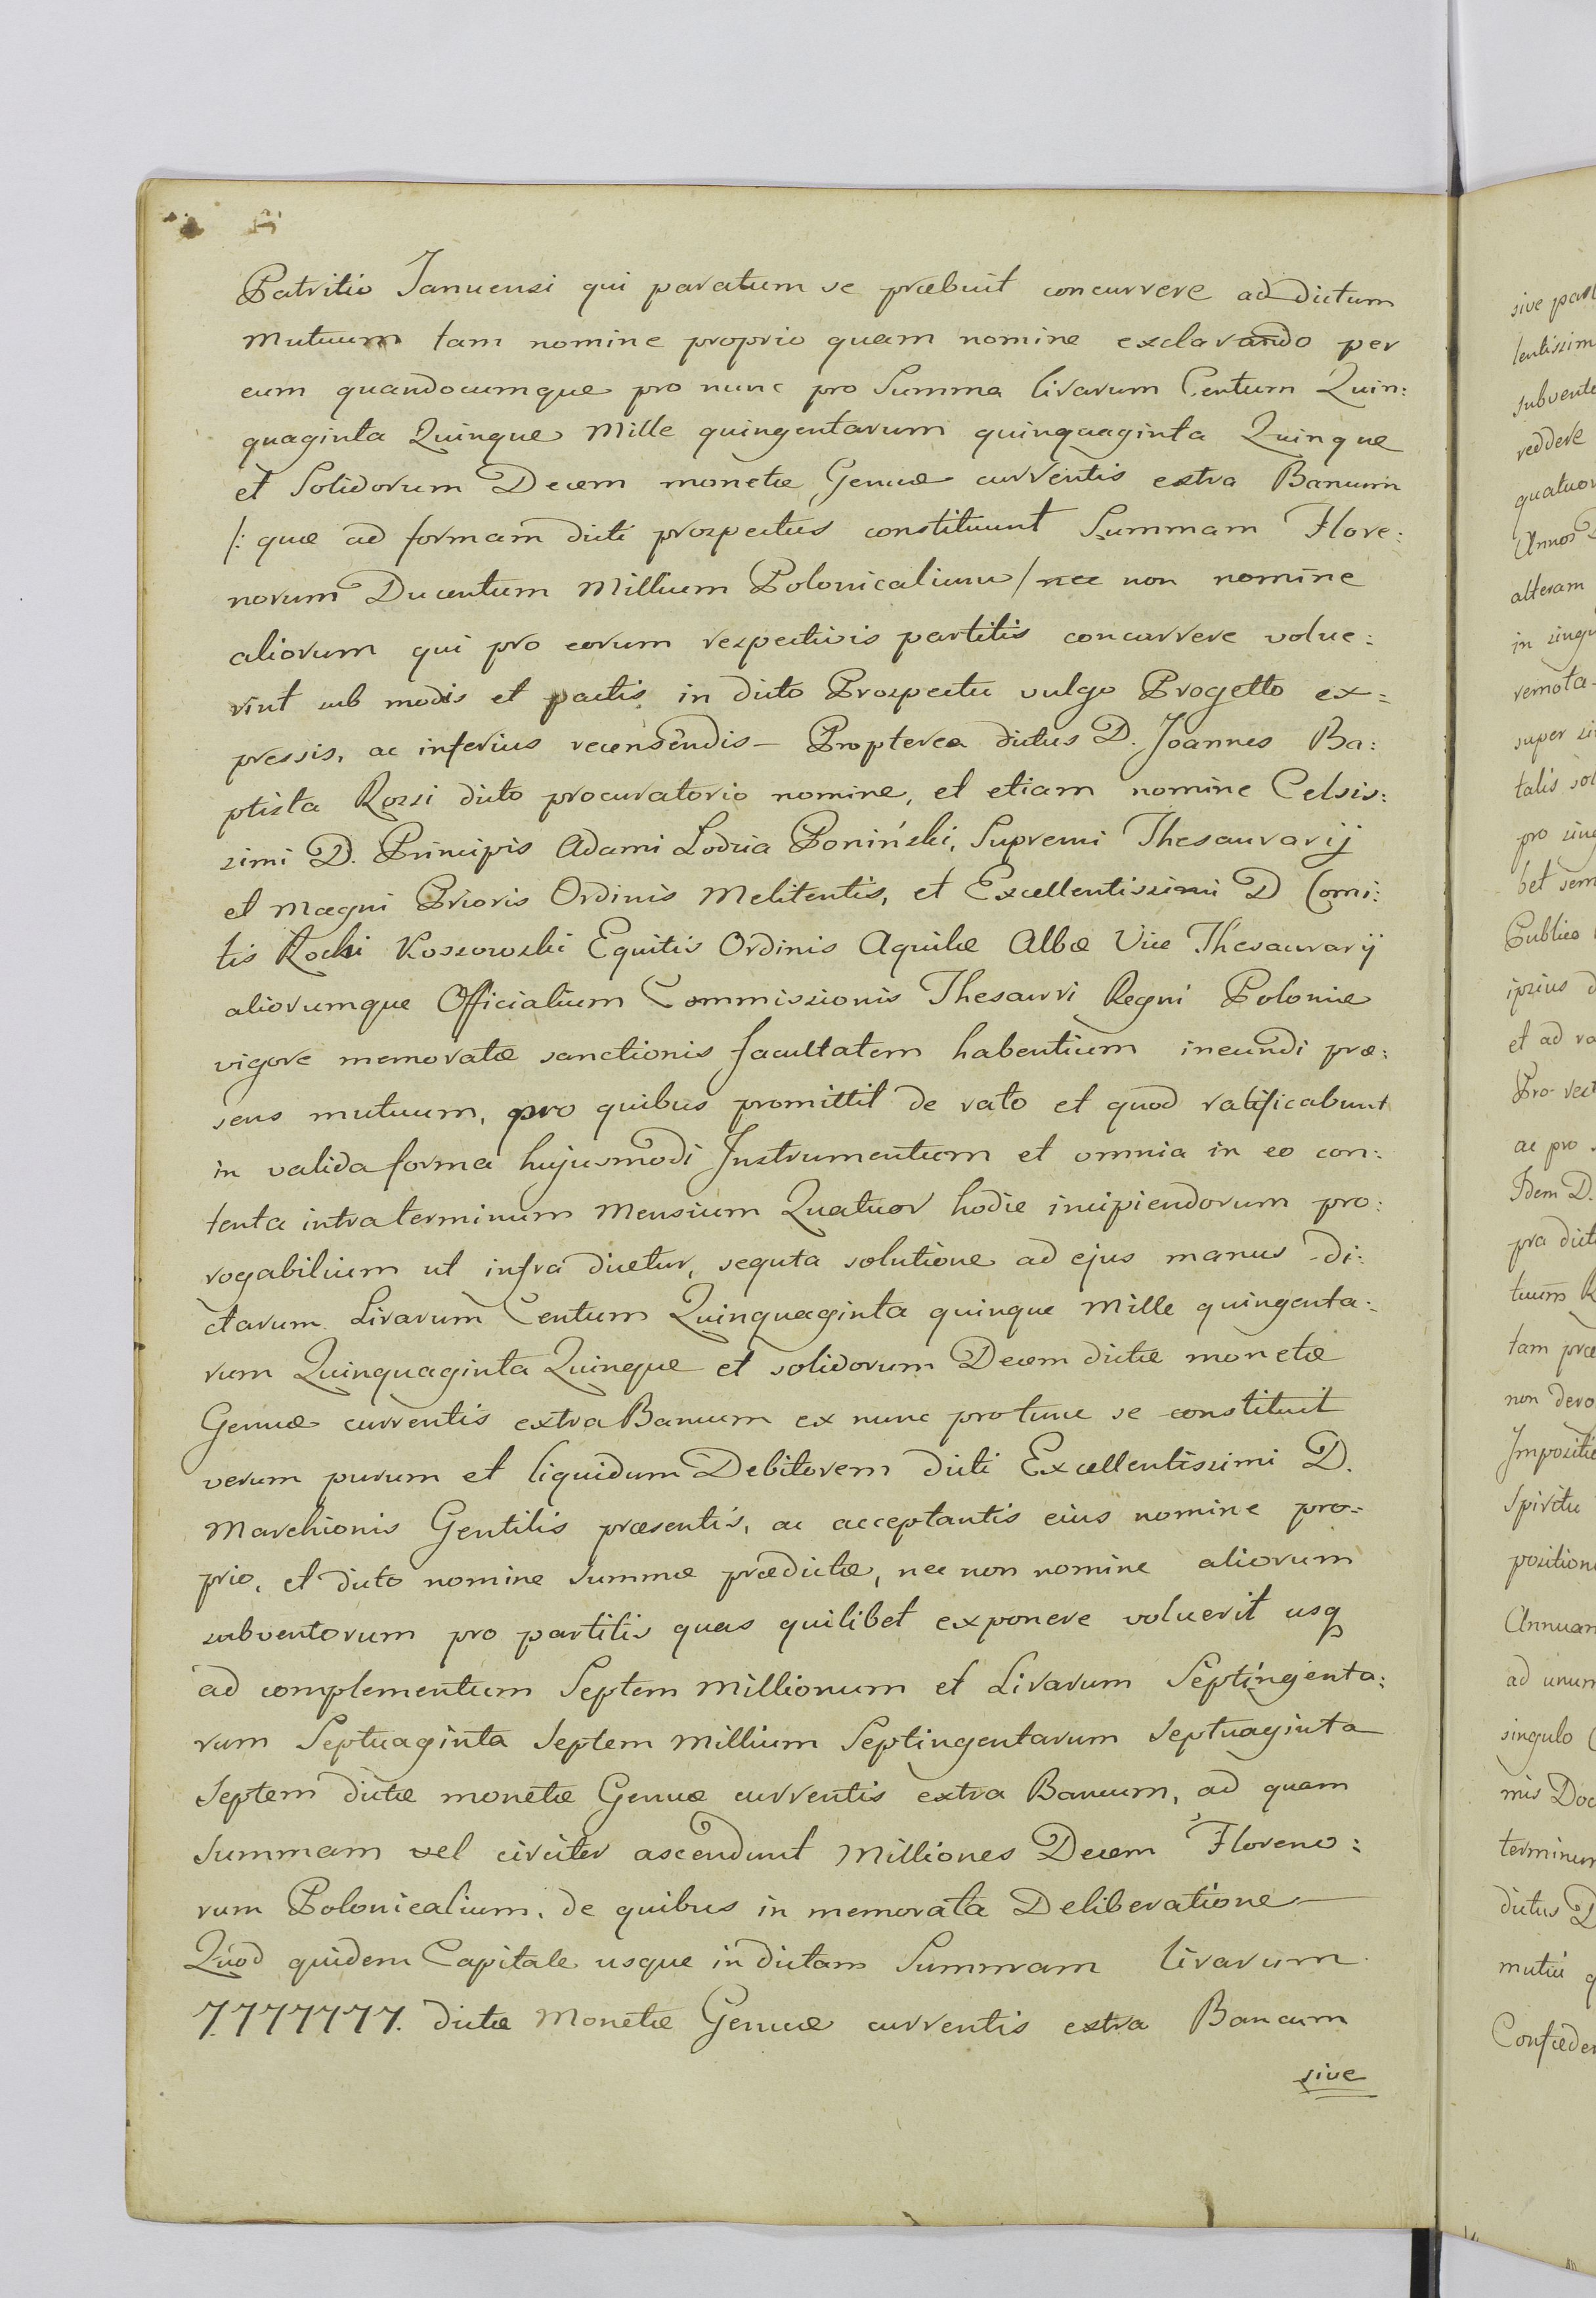 Patritio Januensi qui paratum se præbuit concurrere ad dictum
Mutuum tam nomine proprio quam nomine exclarando per
eum quandocumque pro nunc pro Summa livarum Centum Quin:
quaginta Quinque Mille quingentarum quinquaginta Quinque
et Solidorum Decem monetæ Genuæ currentis extra Bancum
/: quæ ad formam dicti prospectus constituunt Summam Flore:
norum Ducentum Millium Polonicalium / nec non nomine
aliorum qui pro eorum respectivis partitis concurrere volue:
rint sub modis et pactis in dicto Prospectu vulgo Progetto ex=
pressis, ac inferius recensendis — Propterea dictus D. Joannes Ba:
ptista Rossi dicto procuratorio nomine, et etiam nomine Celsis:
simi D. Principis Adami Lodzia Poniński, Supremi Thesaurarij
et Magni Prioris Ordinis Melitentis, et Excellentissimi D Comi:
tis Rochi Kossowski Equitis Ordinis Aquilæ Albæ Vice Thesaurarij
aliorumque Officialium Commissionis Thesauri Regni Poloniæ
vigore memoratæ sanctionis facultatem habentium ineundi præ:
sens mutuum, pro quibus promittit de rato et quod ratificabunt
in valida forma hujusmodi Instrumentum et omnia in eo con:
tenta intra terminum Mensium Quatuor hodie incipiendorum pro:
rogabilium ut infra dicetur, seguta solutione ad ejus manus di:
ctarum Livarum Centum Quinquaginta quinque Mille quingenta:
rum Quinquaginta Quinque et solidorum Decem dictæ monetæ
Genuæ currentis extra Bancum ex nunc pro tunc se constituit
verum purum et liquidum Debitorem dicti Excellentissimi D.
Marchionis Gentilis præsentis, ac acceptantis eius nomine pro=
prio, et dicto nomine summæ prædictæ, nec non nomine aliorum
subventorum pro partitis quas quilibet exponere voluerit usq
ad complementum Septem Millionum et Livarum Septingenta:
rum Septuaginta Septem Millium Septingentarum Septuaginta
Septem dictæ monetæ Genuæ currentis extra Bancum, ad quam
Summam vel circiter ascendunt Milliones Decem Floreno:
rum Polonicalium, de quibus in memorata Deliberatione —
Quod quidem Capitale usque in dictam Summam livarum
7.777777. dictæ Monetæ Genuæ currentis extra Bancum
sive